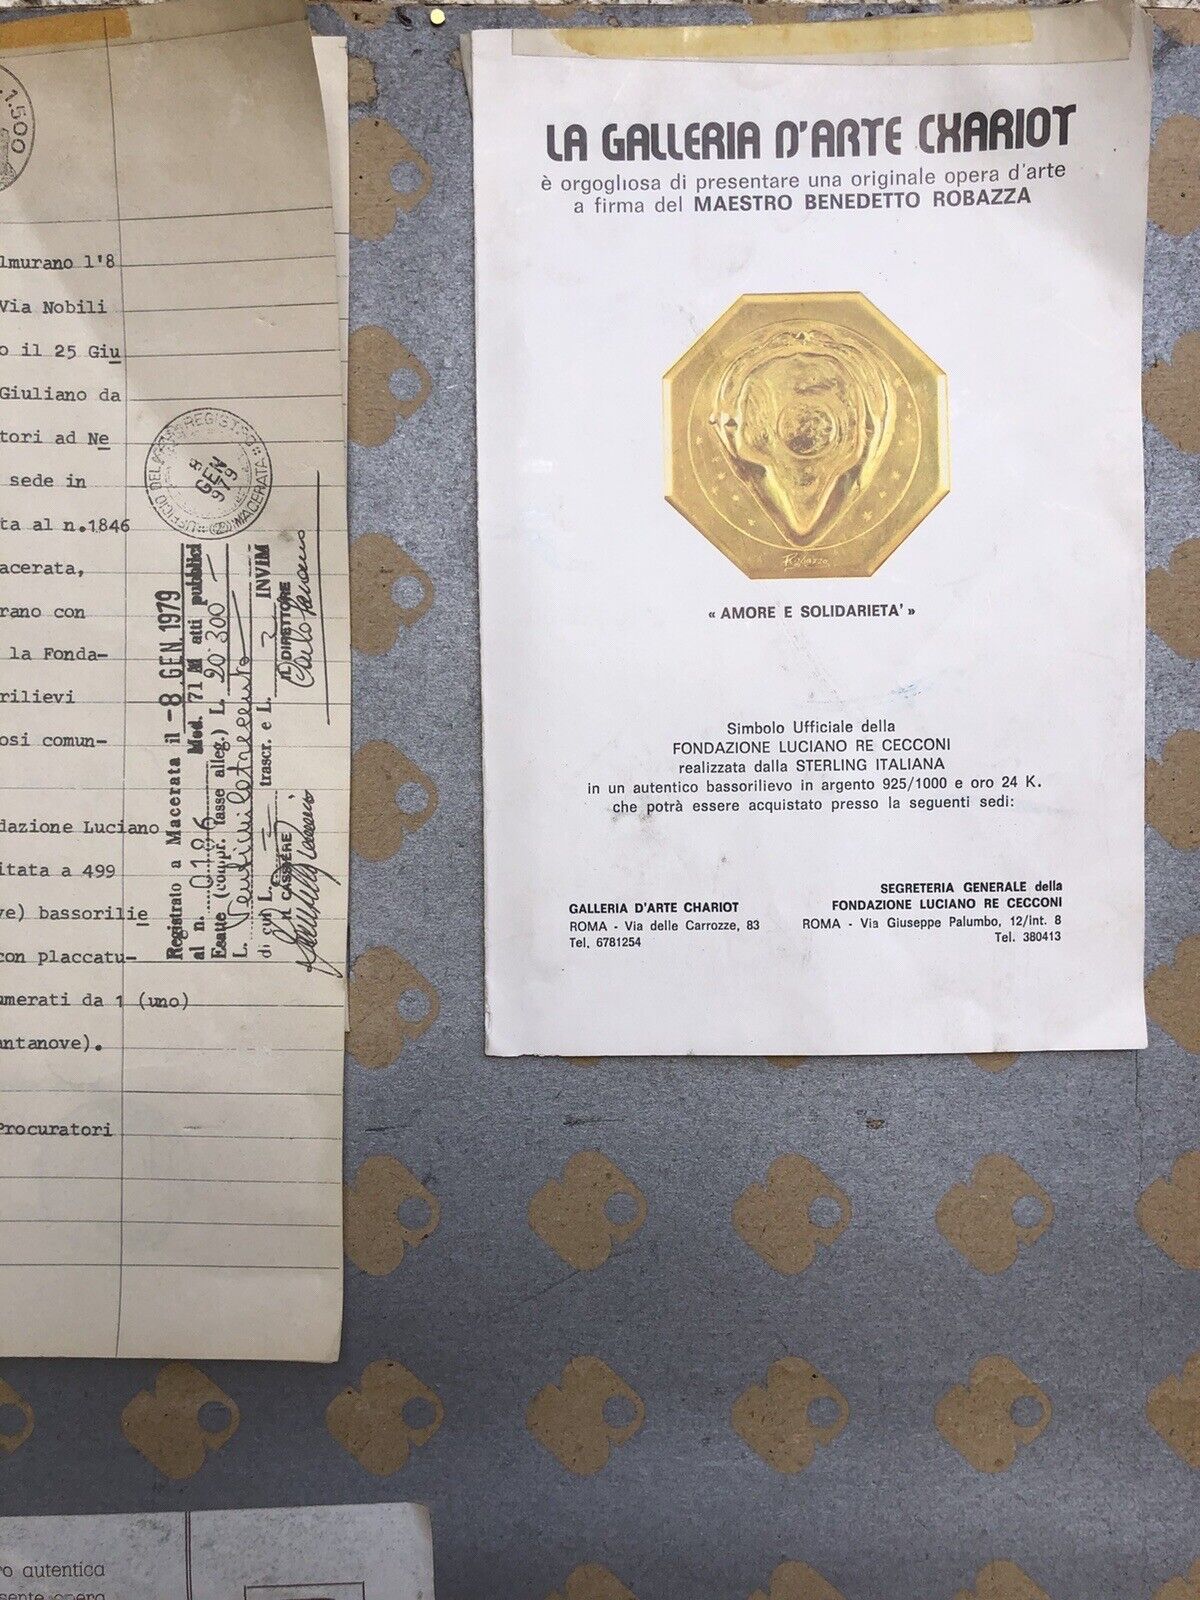 1.500
lmurano l'8
Via Nobili
o il 25 Giu
Giuliano da
tori ad Ne
sede in
ta al n.1846
acerata,
rano con
la Fonda-
rilievi
osi comun-
dazione Luciano
itata a 499
ve) bassorilie
con placcatu-
umerati da 1 (uno)
antanove).
Procuratori
UFFICIO DEL REGISTRO
MACERATA
8 GEN 979
Registrato a Macerata il -8 GEN. 1979
al n. 0186 Mod. 71 M atti pubblici
Esatte (compr. tasse alleg.) L. 20.300
L. Ventimilatrecento
di cui L. trascr. e L. 3 INVIM
IL CASSIERE
IL DIRETTORE
LA GALLERIA D'ARTE CHARIOT
è orgogliosa di presentare una originale opera d'arte
a firma del MAESTRO BENEDETTO ROBAZZA
Robazza
« AMORE E SOLIDARIETA' »
Simbolo Ufficiale della
FONDAZIONE LUCIANO RE CECCONI
realizzata dalla STERLING ITALIANA
in un autentico bassorilievo in argento 925/1000 e oro 24 K.
che potrà essere acquistato presso la seguenti sedi:
GALLERIA D'ARTE CHARIOT
ROMA - Via delle Carrozze, 83
Tel. 6781254
SEGRETERIA GENERALE della
FONDAZIONE LUCIANO RE CECCONI
ROMA - Via Giuseppe Palumbo, 12/int. 8
Tel. 380413
ro autentica
sente opera